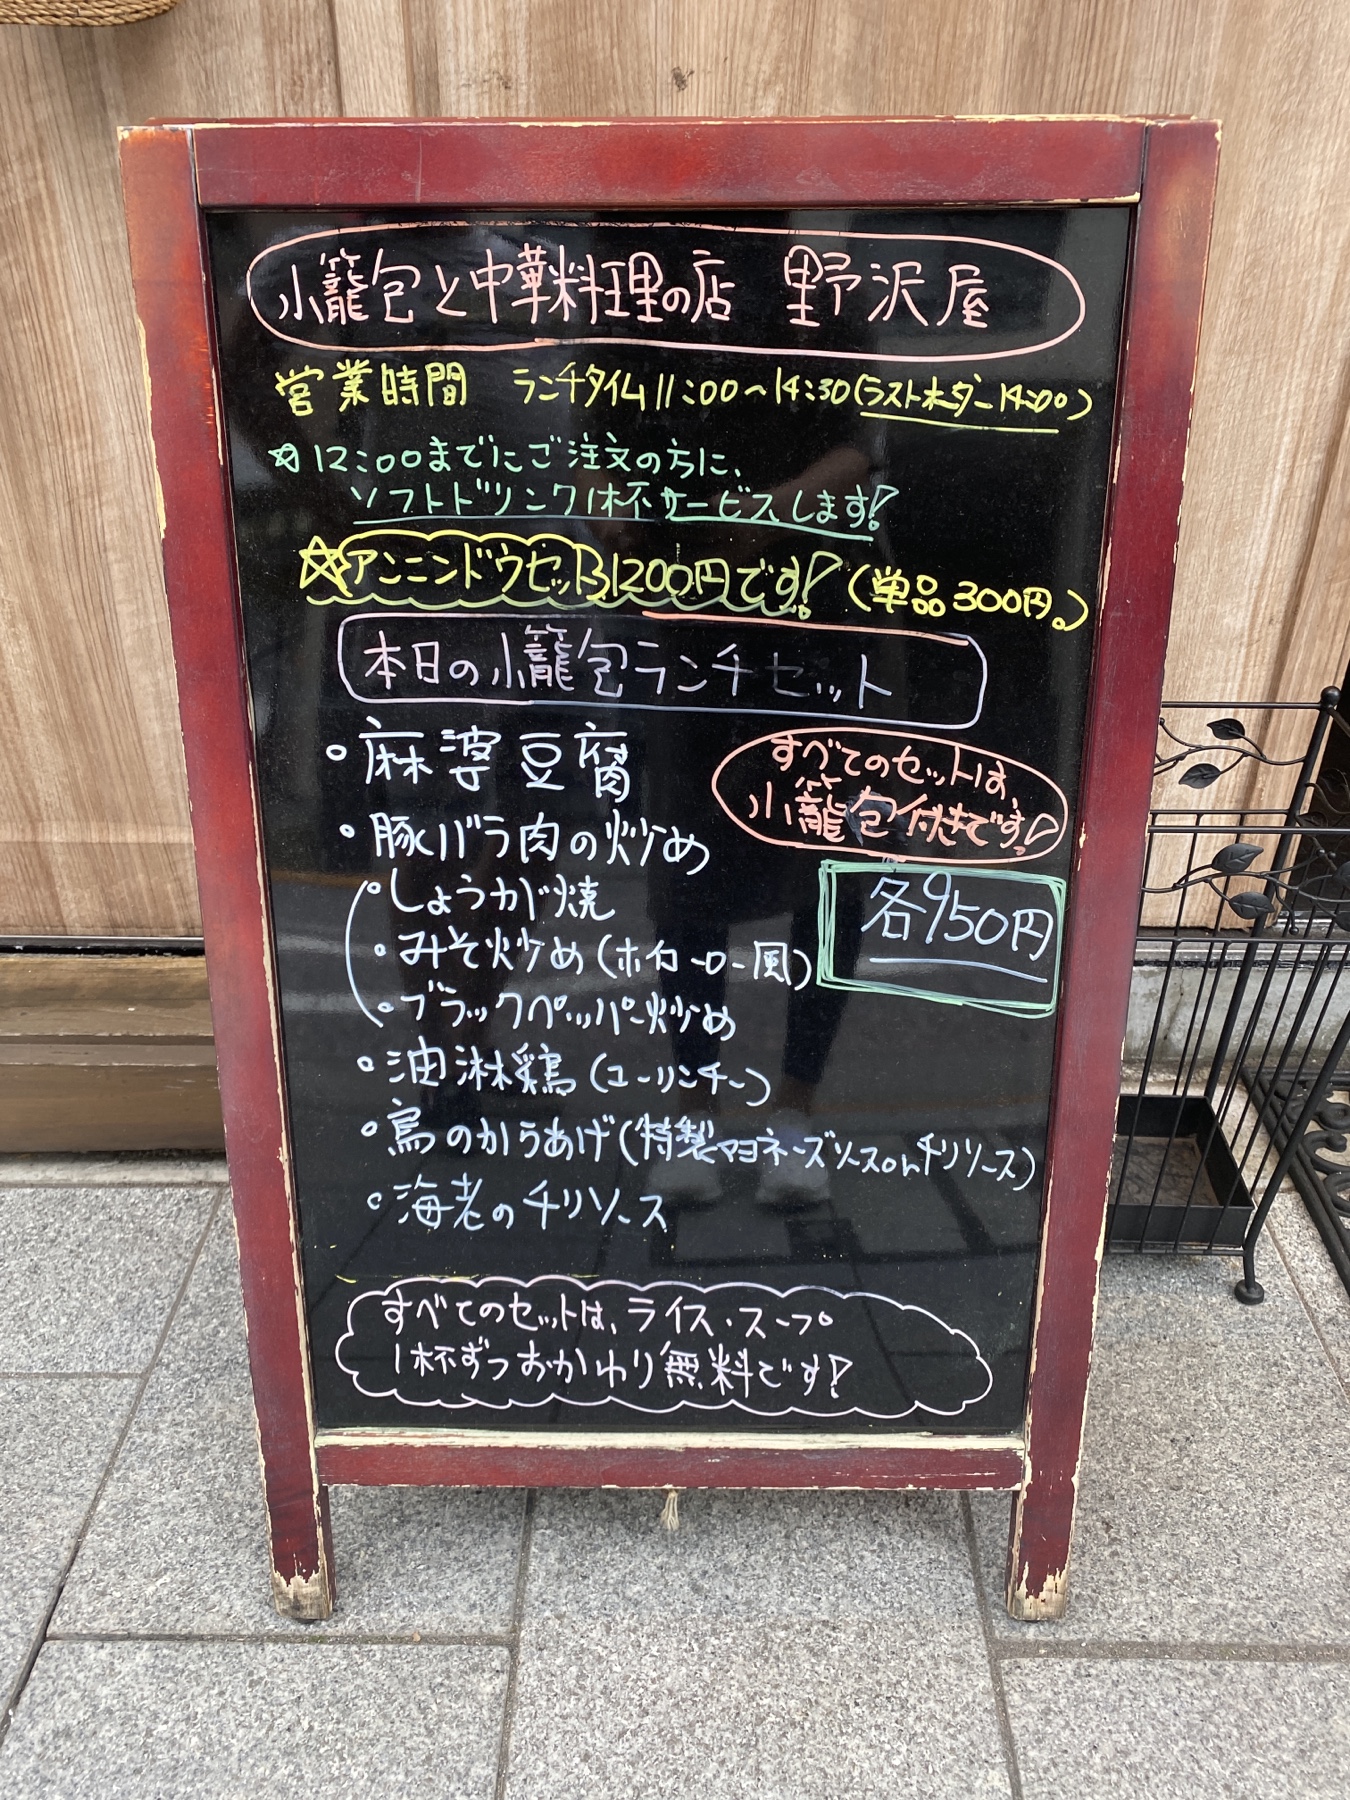 小籠包と中華料理の店 野沢屋
営業時間 ランチタイム11:00~14:30(ラストオーダー14:00)
☆12:00までにご注文の方に、
ソフトドリンク1杯サービスします!
☆アンニンドウセット1200円です!(単品300円。)
本日の小籠包ランチセット
・麻婆豆腐
すべてのセットは、
小籠包付きです!
・豚バラ肉の炒め
各950円
・しょうが焼
・みそ炒め(ホイコーロー風)
・ブラックペッパー炒め
・油淋鶏(ユーリンチー)
・鳥のからあげ(特製マヨネーズソースorチリソース)
・海老のチリソース
すべてのセットは、ライス・スープ
1杯ずつおかわり無料です!